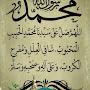 محمد رسول الله
اللهم صل على سيدنا محمد الحبيب
المحبوب، شافي العلل ومفرج
الكروب، وعلى آله وصحبه وسلم